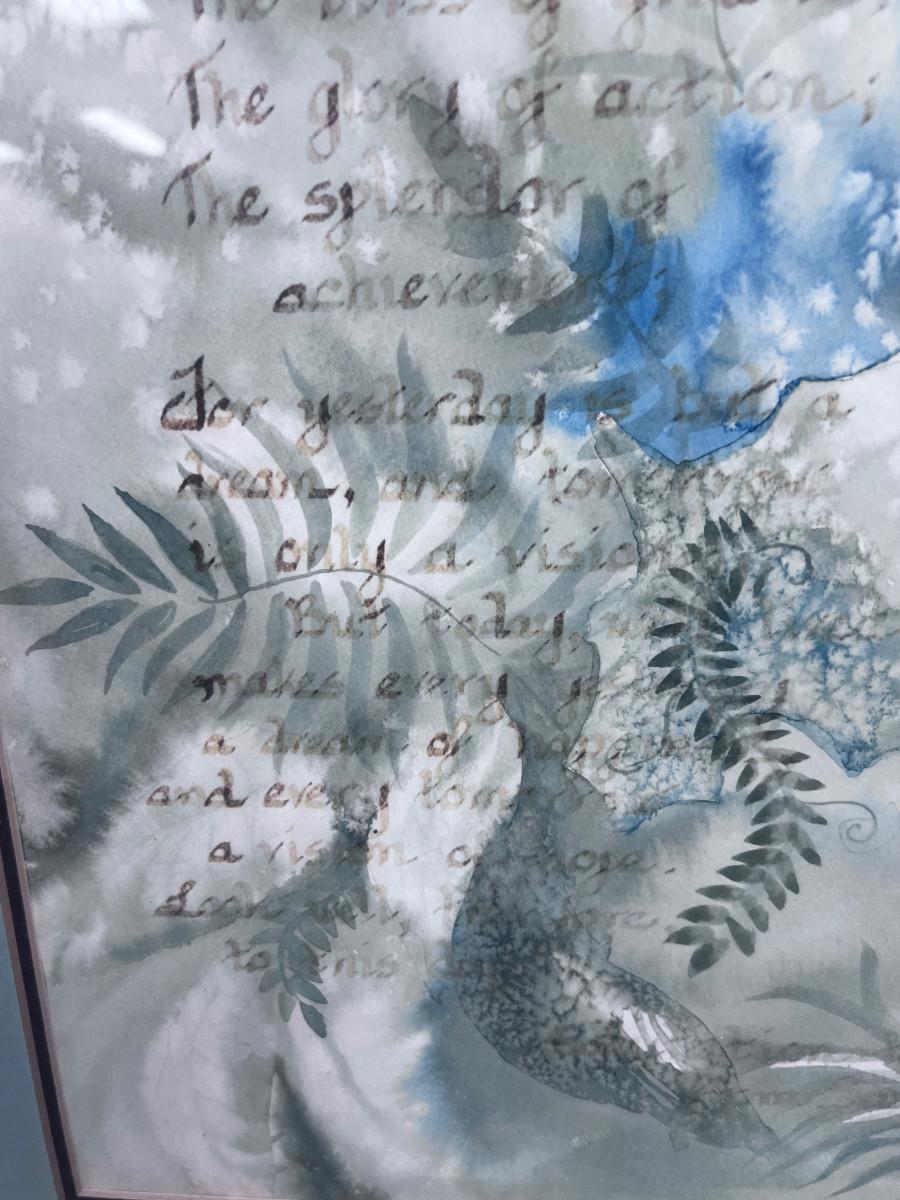 The bliss of growth;
The glory of action;
The splendor of
achievement;
For yesterday is but a
dream, and tomorrow
is only a vision
But today, well lived
makes every yesterday
a dream of happiness
and every tomorrow
a vision of hope.
Look well, therefore,
to this day